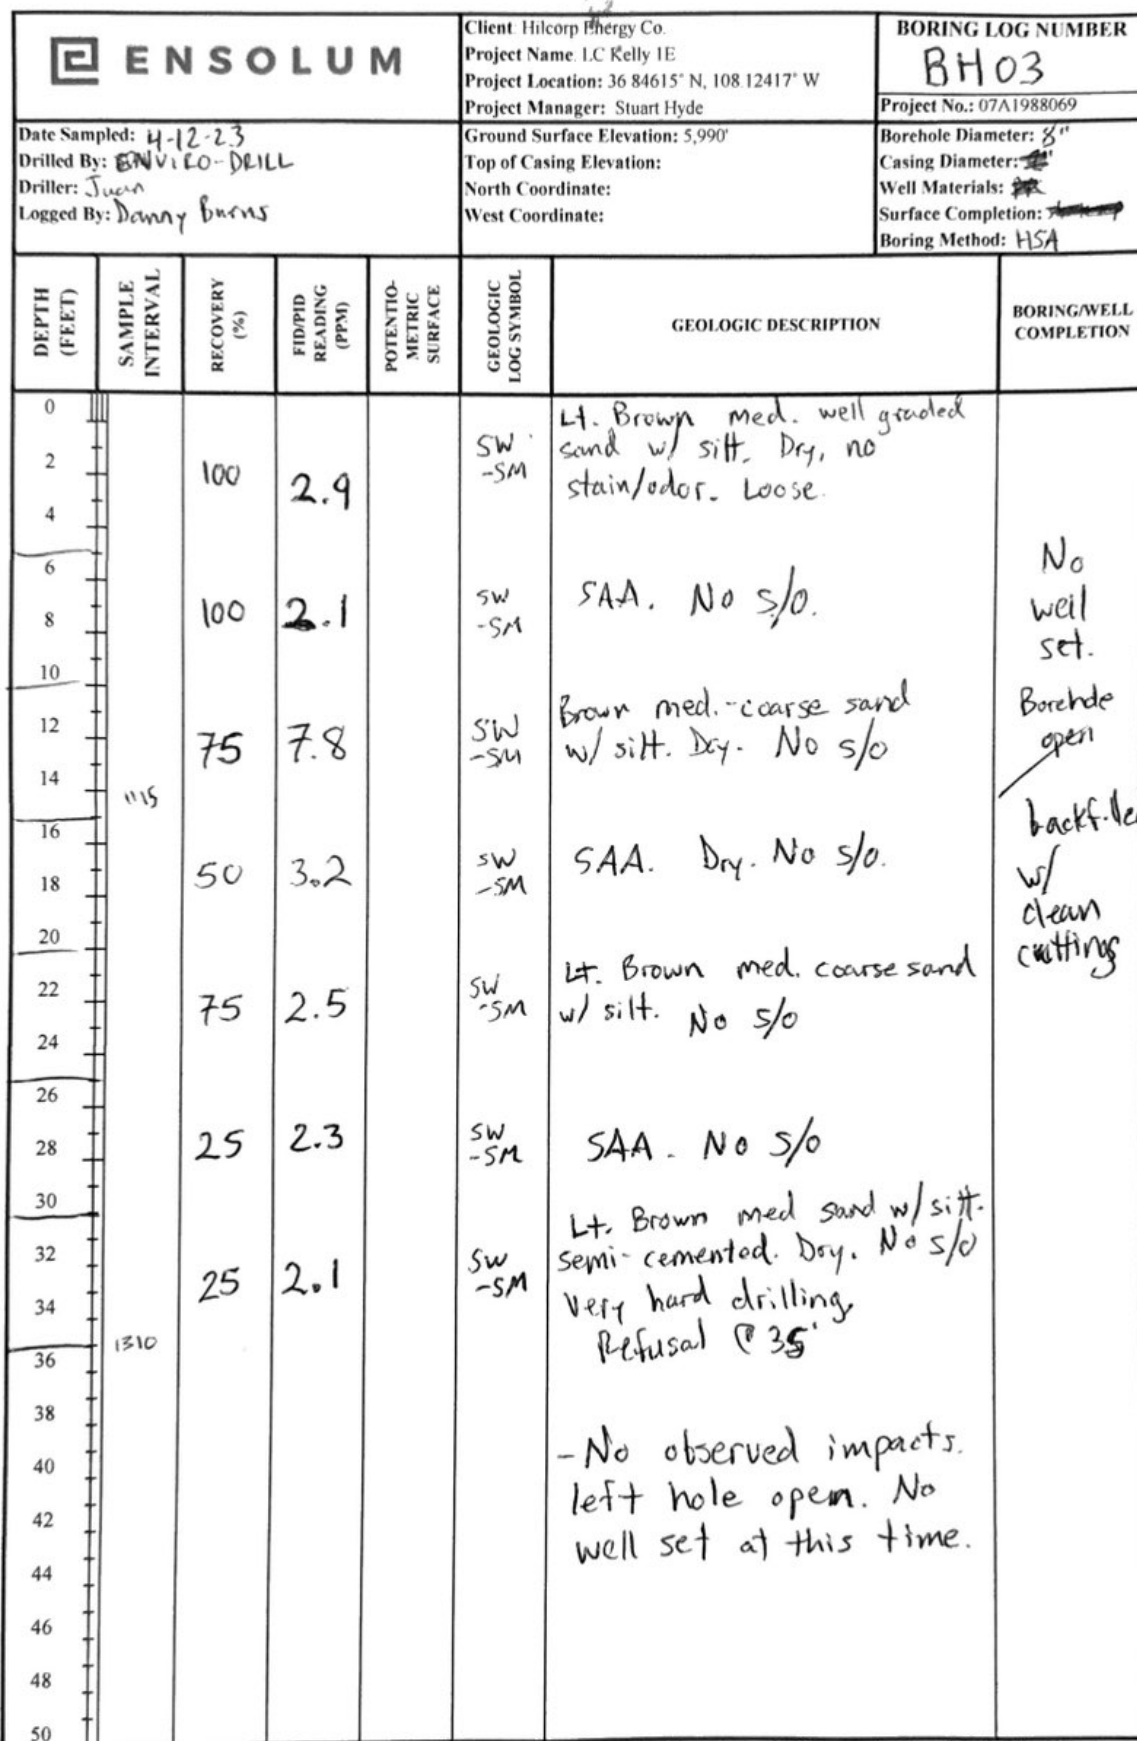 ENSOLUM
Client: Hilcorp Energy Co.
Project Name: LC Kelly 1E
Project Location: 36 84615° N, 108 12417° W
Project Manager: Stuart Hyde
BORING LOG NUMBER
BH03
Project No.: 07A1988069
Date Sampled: 4-12-23
Drilled By: ENVIRO-DRILL
Driller: Juan
Logged By: Danny Burns
Ground Surface Elevation: 5,990'
Top of Casing Elevation:
North Coordinate:
West Coordinate:
Borehole Diameter: 8"
Casing Diameter:
Well Materials:
Surface Completion:
Boring Method: HSA
DEPTH
(FEET)
SAMPLE
INTERVAL
RECOVERY
(%)
FID/PID
READING
(PPM)
POTENTIO-
METRIC
SURFACE
GEOLOGIC
LOG SYMBOL
GEOLOGIC DESCRIPTION
BORING/WELL
COMPLETION
0
2
4
100
2.9
SW
-SM
Lt. Brown med. well graded
sand w/ silt. Dry, no
stain/odor. Loose.
6
8
10
100
2.1
SW
-SM
SAA. No s/o.
12
14
1115
75
7.8
SW
-SM
Brown med.-coarse sand
w/ silt. Dry. No s/o
16
18
20
50
3.2
SW
-SM
SAA. Dry. No s/o.
22
24
75
2.5
SW
-SM
Lt. Brown med. coarse sand
w/ silt. No s/o
26
28
30
25
2.3
SW
-SM
SAA. No s/o
32
34
1310
25
2.1
SW
-SM
Lt. Brown med sand w/ silt.
semi-cemented. Dry. No s/o
Very hard drilling.
Refusal @ 35'
36
38
40
42
44
46
48
50
-No observed impacts.
left hole open. No
well set at this time.
No
well
set.
Borehole
open
backfilled
w/
clean
cuttings